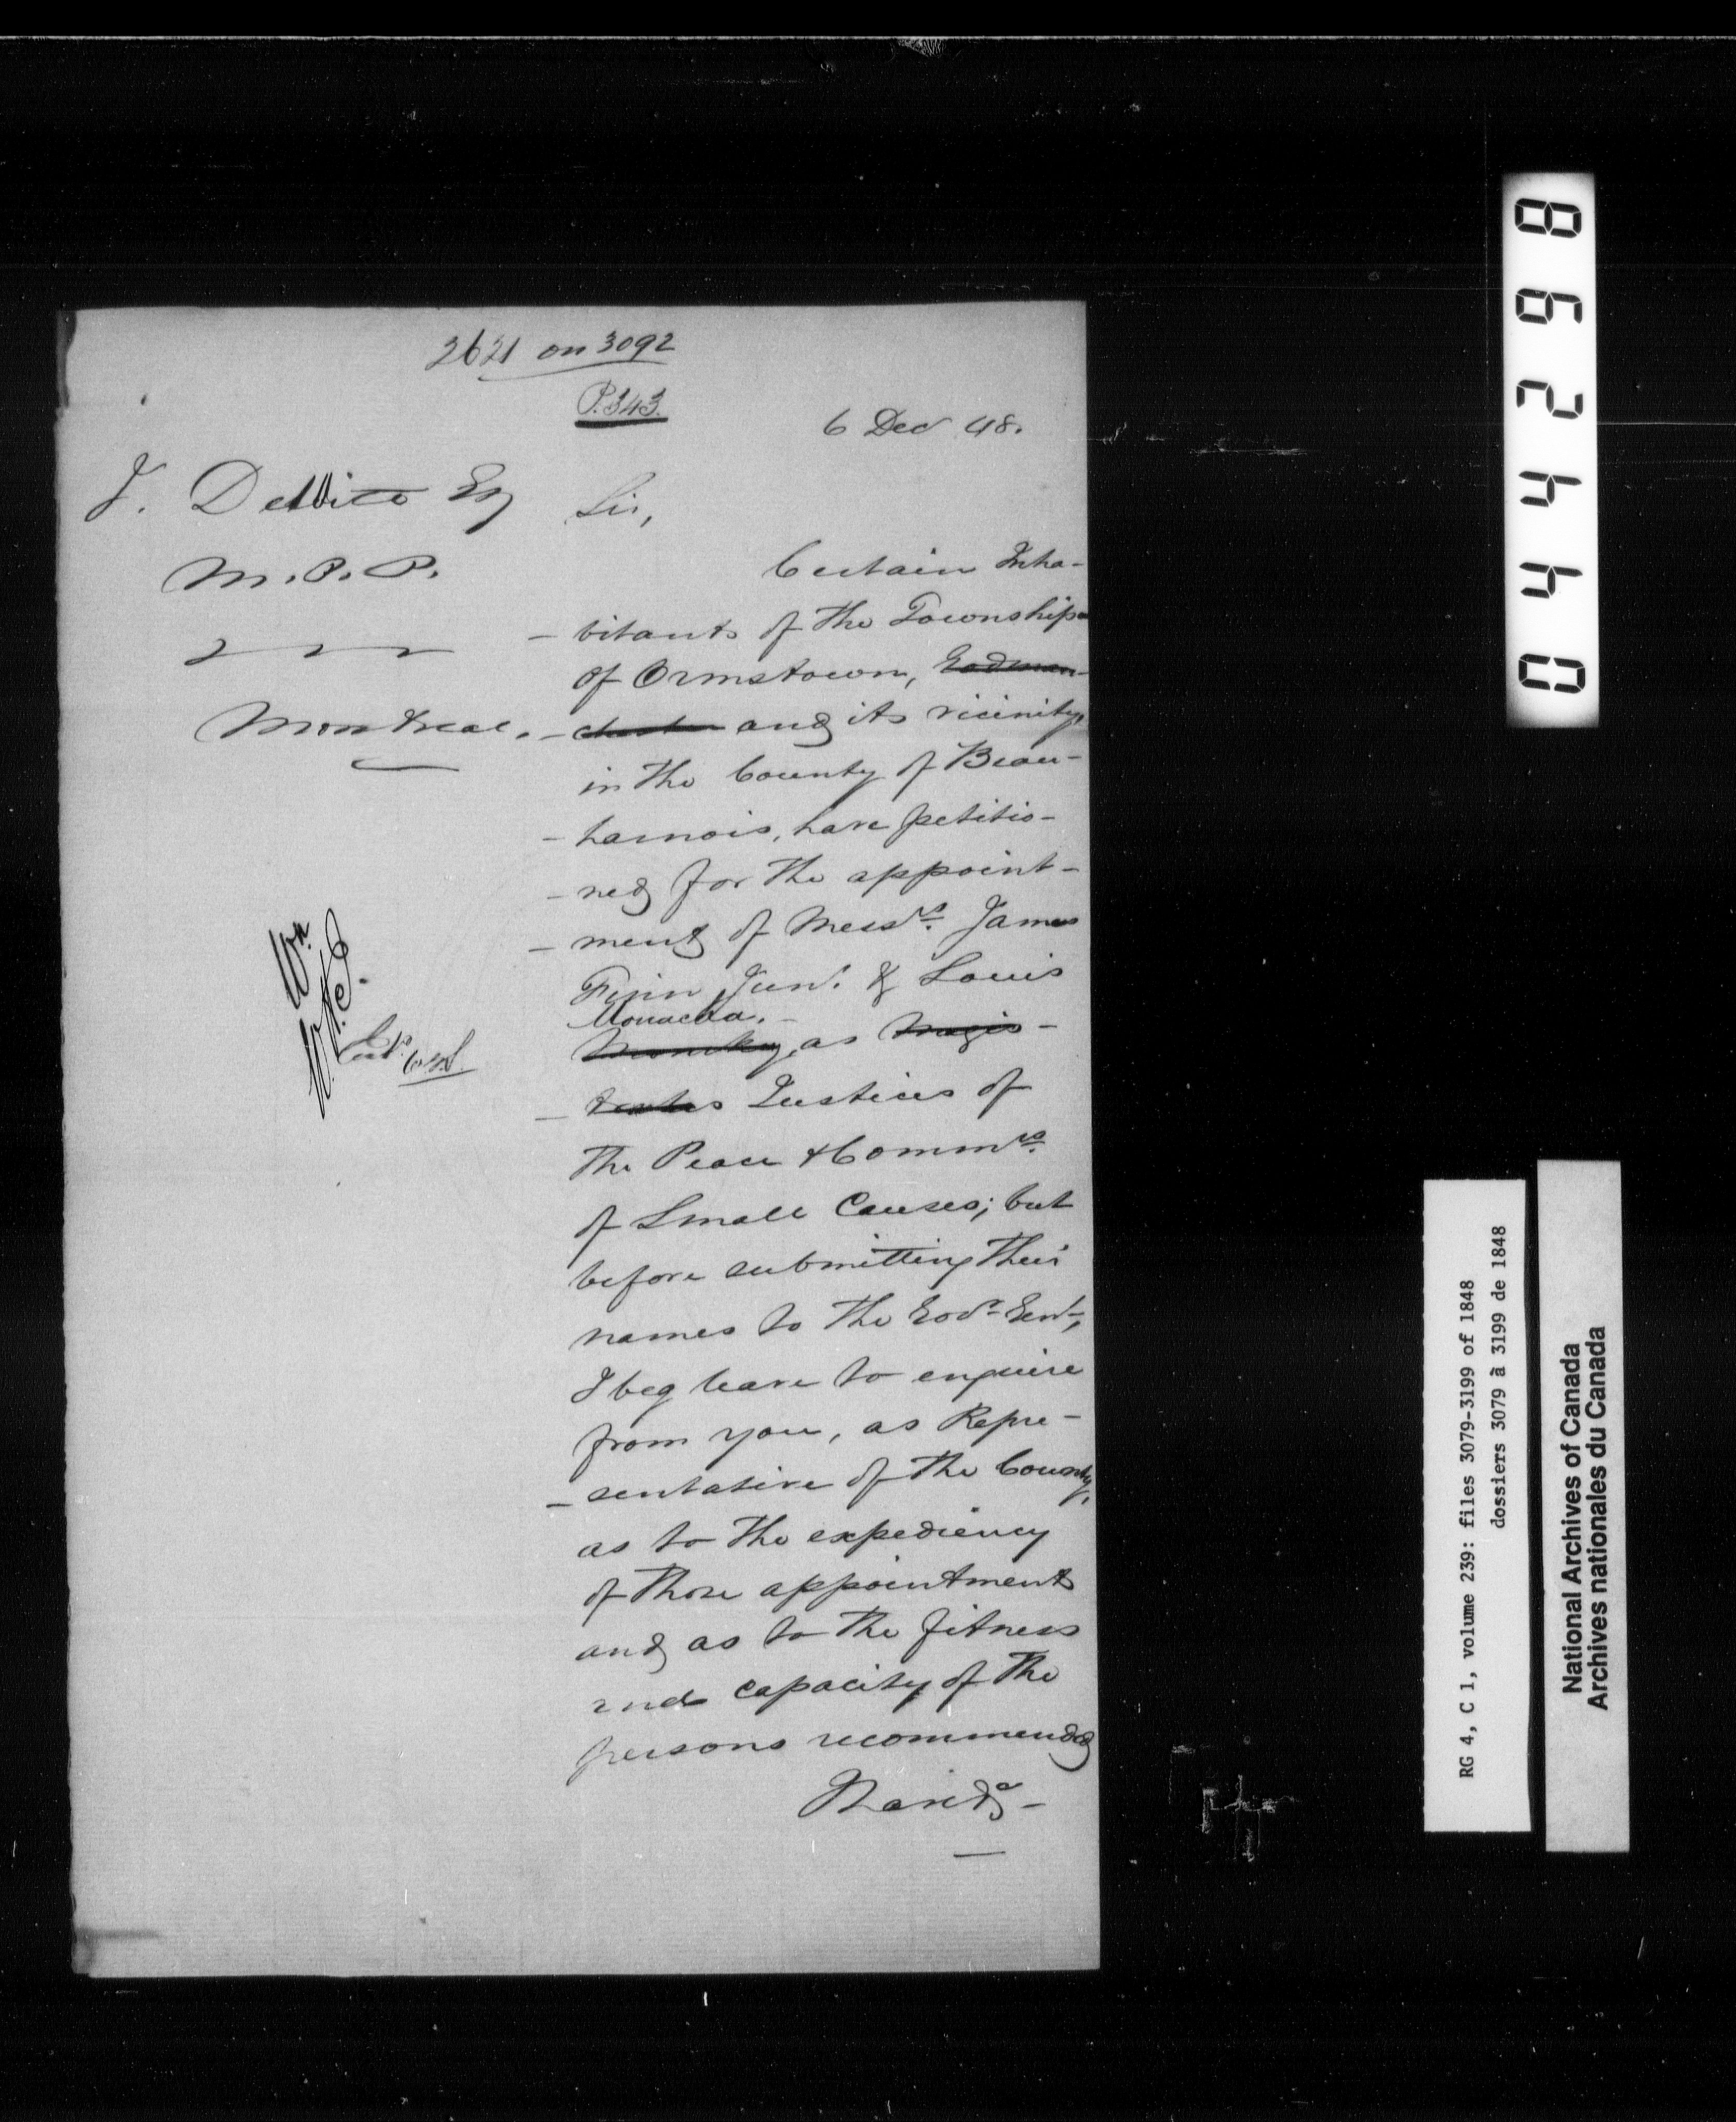 2621 on 3092
P. 343.
6 Dec 48.
J. DeWitt Esq
M.P.P.
Montreal.
Sir,
Certain Inha-
- bitants of the Township
of Ormstown, Godman-
- chester and its vicinity,
in the County of Beau-
- harnois, have petitio-
- ned for the appoint-
- ment of Messrs. James
Finn Junr. & Louis
Monacha.
as Magis-
- trates Justices of
the Peace & Commrs.
of Small Causes; but
before submitting their
names to the Govr. Genl.,
I beg leave to enquire
from you, as Repre-
- sentative of the County,
as to the expediency
of those appointments
and as to the fitness
and capacity of the
persons recommended
044298
RG 4, C 1, volume 239: files 3079-3199 of 1848
dossiers 3079 à 3199 de 1848
National Archives of Canada
Archives nationales du Canada